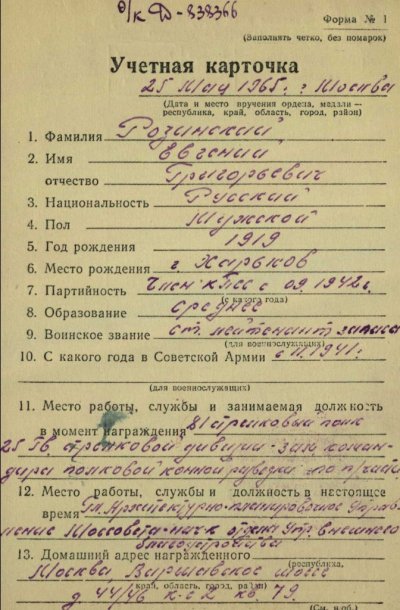 о/к Д-838366
Форма № 1
(Заполнять четко, без помарок)
Учетная карточка
25 мая 1965г. г. Москва
(Дата и место вручения ордена, медали —
республика, край, область, город, район)
1. Фамилия Розинский
2. Имя Евгений
отчество Григорьевич
3. Национальность Русский
4. Пол Мужской
5. Год рождения 1919
6. Место рождения г. Харьков
7. Партийность Член КПСС с 09.1942г.
(с какого года)
8. Образование среднее
9. Воинское звание ст. лейтенант запаса
(для военнослужащих)
10. С какого года в Советской Армии с 11.1941г.
(для военнослужащих)
11. Место работы, службы и занимаемая должность
в момент награждения 81 стрелковый полк
25 Гв. стрелковой дивизии - зам. коман-
дира полковой конной разведки по п/части
12. Место работы, службы и должность в настоящее
время Гл. Архитектурно-планировочное Управ-
ление Моссовета нач-к отдела Упр. внешнего
благоустройства
13. Домашний адрес награжденного
(республика,
Москва Варшавское шоссе
край, область, город, район)
д 44/46 к-с 2 кв. 79.
(См. н/об.)